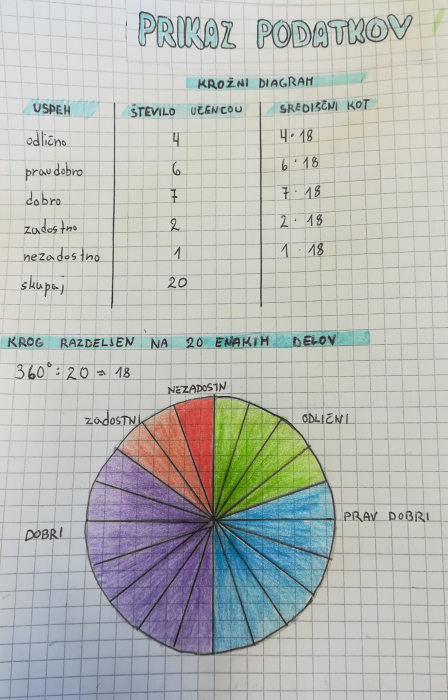 PRIKAZ PODATKOV
KROŽNI DIAGRAM
USPEH ŠTEVILO UČENCOV SREDIŠČNI KOT
odlično 4 4·18
prav dobro 6 6·18
dobro 7 7·18
zadostno 2 2·18
nezadostno 1 1·18
skupaj 20
KROG RAZDELJEN NA 20 ENAKIH DELOV
360° : 20 = 18
NEZADOSTN
ZADOSTNI ODLIČNI
PRAV DOBRI
DOBRI